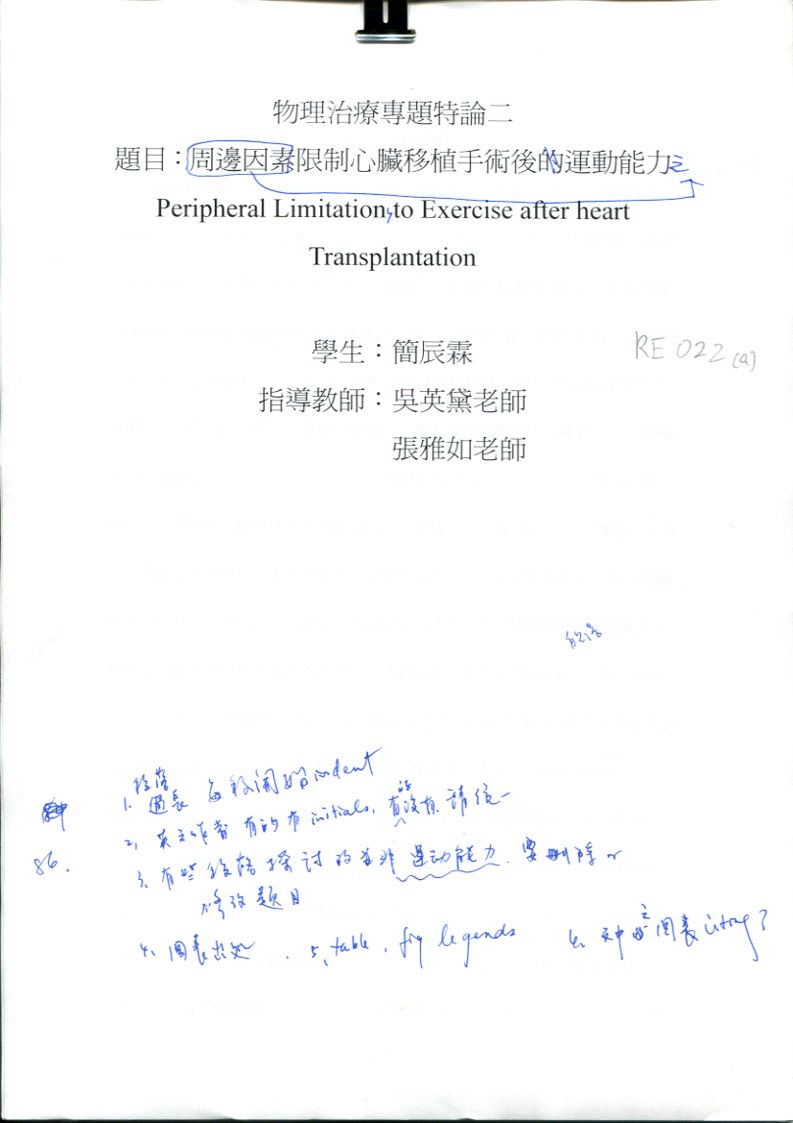 物理治療專題特論二
題目：周邊因素限制心臟移植手術後的運動能力之
Peripheral Limitation, to Exercise after heart
Transplantation
學生：簡辰霖
RE 022 (a)
指導教師：吳英黛老師
張雅如老師
段落
1. 過長 每段開始 indent
2. 英文作者 有的有 initials, 有的沒有 請統一
86.
3. 有些段落探討的並非运动能力. 要刪除or
修改題目
4. 圖表出處. 5. table, fig legends
文中 圖表 citing?